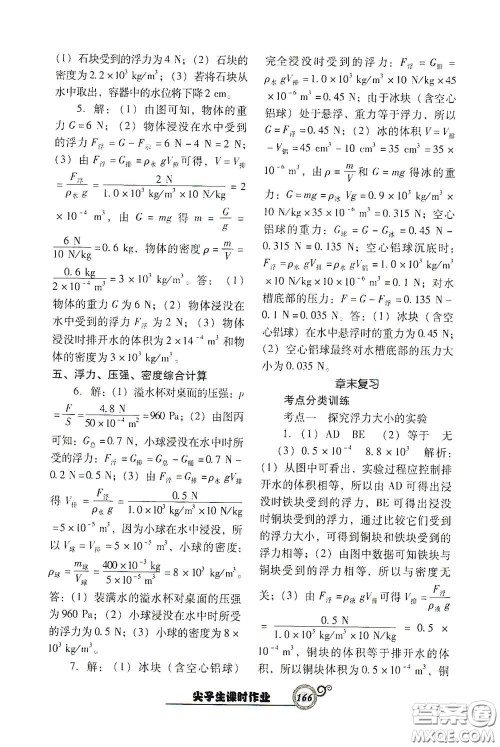 (1) 石块受到的浮力为 4 N；(2) 石块的
密度为 2.2×10³ kg/m³；(3) 若将石块从
水中取出，容器中的水位将下降 2 cm。
5. 解：(1) 由图可知，物体的重
力 G＝6 N；(2) 物体浸没在水中受到
的浮力 F浮＝G－F示＝6 N－4 N＝2 N；
(3) 由 F浮＝G排＝ρ水 gV排可得，V＝V排
＝F浮/ρ水g＝2 N/1.0×10³ kg/m³×10 N/kg＝2
×10⁻⁴ m³，由 G＝mg 得 m＝G/g
＝6 N/10 N/kg＝0.6 kg，物体的密度 ρ＝m/V＝
0.6 kg/2×10⁻⁴ m³＝3×10³ kg/m³。答：(1)
物体的重力 G 为 6 N；(2) 物体浸没在
水中受到的浮力 F浮为 2 N；(3) 物体
浸没时排开水的体积为 2×14⁻⁴ m³ 和
物体的密度为 3×10³ kg/m³。
五、浮力、压强、密度综合计算
6. 解：(1) 溢水杯对桌面的压强：p
＝F/S＝4.8 N/50×10⁻⁴ m²＝960 Pa；(2) 由图丙
可知：G总＝0.7 N，小球浸没在水中时所
受的浮力：F浮＝G排＝G总－G杯＝0.7 N
－0.2 N＝0.5 N；(3) 由 F浮＝ρ水 gV排
得 V排＝F浮/ρ水g＝0.5 N/1.0×10³ kg/m³×10 N/kg
＝5×10⁻⁵ m³，因为小球在水中浸没，所
以 V球＝V排＝5×10⁻⁵ m³，小球的密度：
ρ球＝m球/V球＝400×10⁻³ kg/5×10⁻⁵ m³＝8×10³ kg/m³。
答：(1) 装满水的溢水杯对桌面的压强
为 960 Pa；(2) 小球浸没在水中时所受
的浮力为 0.5 N；(3) 小球的密度为 8×
10³ kg/m³。
7. 解：(1) 冰块（含空心铝球）
完全浸没时受到的浮力：F浮＝G排＝
m排g＝ρ水 gV排＝1.0×10³ kg/m³×10 N/kg×45
×10⁻⁶ m³＝0.45 N；由于冰块（含空心
铝球）处于悬浮，重力等于浮力，所以
G＝F浮＝0.45 N；(2) 冰的体积 V冰
＝V－V铝＝45 cm³－10 cm³＝35 cm³＝35
×10⁻⁶ m³，由 ρ＝m/V 和 G＝mg 得冰的重
力：G冰＝m冰g＝ρ冰V冰g＝0.9×10³ kg/m³
×10 N/kg×35×10⁻⁶ m³＝0.315 N；空心
铝球的重力：G球＝G－G冰＝0.45 N－
0.315 N＝0.135 N；空心铝球沉底时：
F浮＝ρ水 gV排＝ρ水 gV铝＝1.0×10³ kg/m³
×10 N/kg×10×10⁻⁶ m³＝0.1 N；对水
槽底部的压力：F＝G球－F浮＝0.135 N－
0.1 N＝0.035 N。答：(1) 冰块（含空
心铝球）在水中悬浮时的重力为 0.45 N；
(2) 空心铝球最终对水槽底部的压力大
小为 0.035 N。
章末复习
考点分类训练
考点一　探究浮力大小的实验
1. (1) AD　BE　(2) 等于　无
(3) 0.5×10⁻⁴　8.8×10³　解析：
(1) 从图中可看出，实验过程应控制排
开水的体积相等，所以由 AD 可得出浸
没时铁块受到的浮力，BE 可得出浸没
时铜块受到的浮力，通过比较它们受到
的浮力大小，可得到铜块和铁块受到的
浮力相等；(2) 由图中数据可知铁块与
铜块受到的浮力相等，所以与密度无
关；(3) 由 F浮＝ρ液 gV排可得 V排＝F浮/ρ液g
＝0.5 N/1.0×10³ kg/m³×10 N/kg＝0.5×
10⁻⁴ m³，铜块的体积等于排开水的体
积，所以铜块的体积为 0.5×10⁻⁴ m³，铜
尖子生课时作业
166
答案圈
MXQE.COM